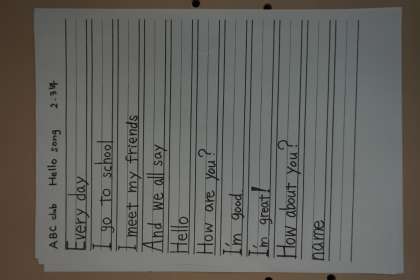 ABC club Hello song 2-3
Every day
I go to school
I meet my friends
And we all say
Hello
How are you?
I'm good
I'm great!
How about you?
name